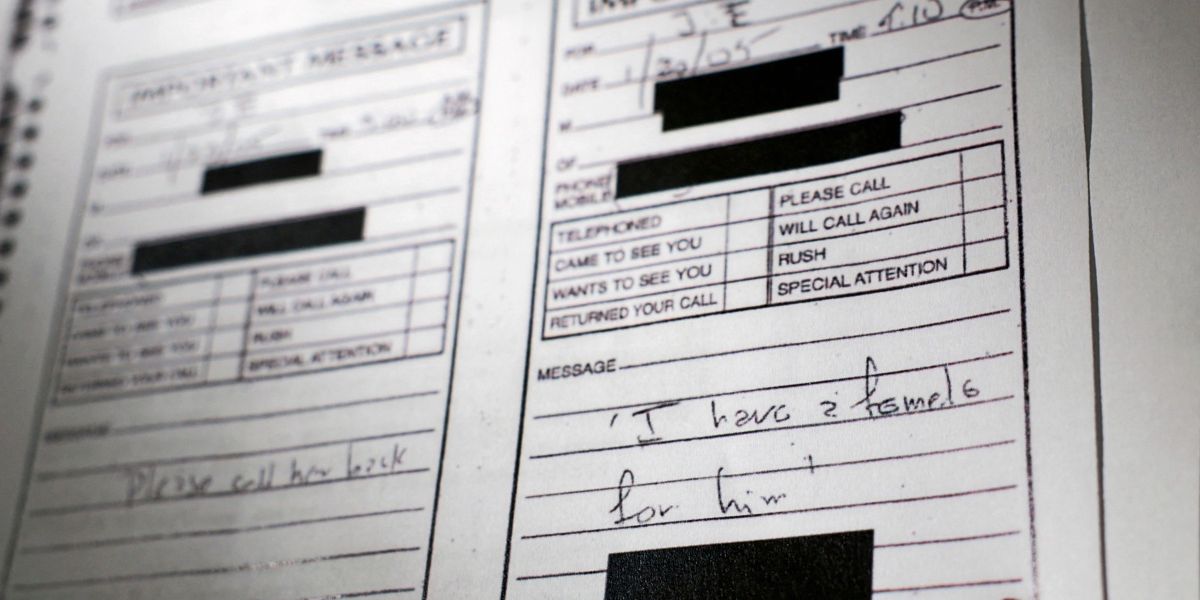 IMPORTANT MESSAGE
J.E
TELEPHONED
PLEASE CALL
CAME TO SEE YOU
WILL CALL AGAIN
WANTS TO SEE YOU
RUSH
RETURNED YOUR CALL
SPECIAL ATTENTION
MESSAGE
Please call her back
FOR J.E
DATE 1/20/05 TIME
M
OF
PHONE/
MOBILE
TELEPHONED
PLEASE CALL
CAME TO SEE YOU
WILL CALL AGAIN
WANTS TO SEE YOU
RUSH
RETURNED YOUR CALL
SPECIAL ATTENTION
MESSAGE
'I have a female
for him'